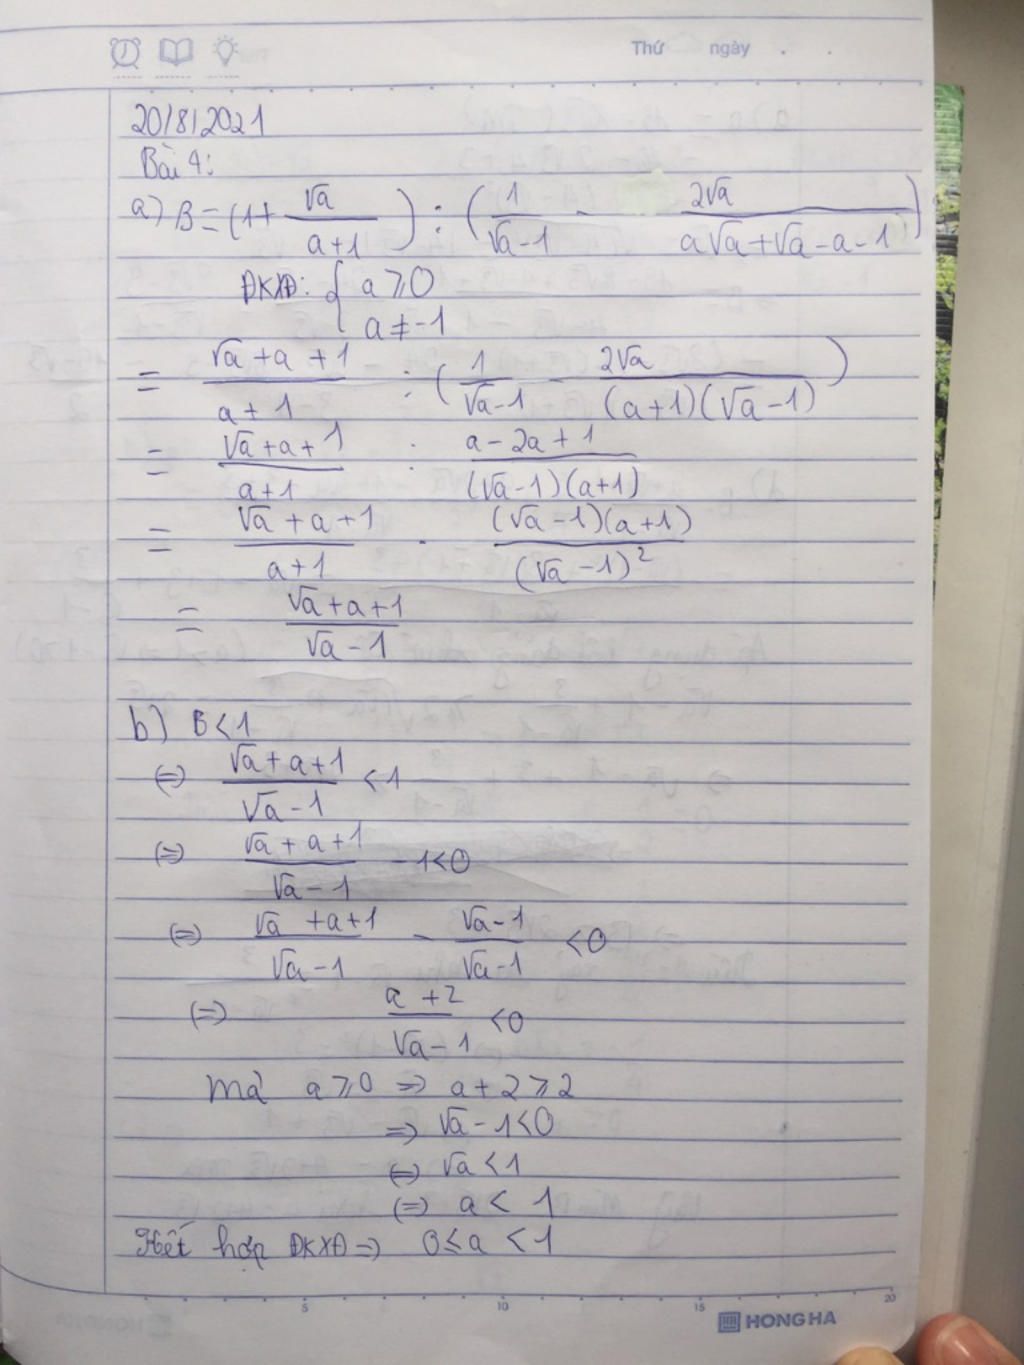 Thứ ngày . .
20/8/2021
Bài 4:
a) B = (1 + √a / (a+1)) : (1 / (√a-1) - 2√a / (a√a+√a-a-1))
ĐKXĐ: { a ≥ 0
a ≠ -1
= (√a+a+1) / (a+1) : (1 / (√a-1) - 2√a / ((a+1)(√a-1)))
= (√a+a+1) / (a+1) : (a-2a+1) / ((√a-1)(a+1))
= (√a+a+1) / (a+1) . ((√a-1)(a+1)) / (√a-1)²
= (√a+a+1) / (√a-1)
b) B < 1
(=) (√a+a+1) / (√a-1) < 1
(=) (√a+a+1) / (√a-1) - 1 < 0
(=) (√a+a+1) / (√a-1) - (√a-1) / (√a-1) < 0
(=) (a+2) / (√a-1) < 0
Mà a ≥ 0 => a+2 ≥ 2
=> √a-1 < 0
(=) √a < 1
(=) a < 1
Kết hợp ĐKXĐ => 0 ≤ a < 1
5 10 15 20
HONG HA